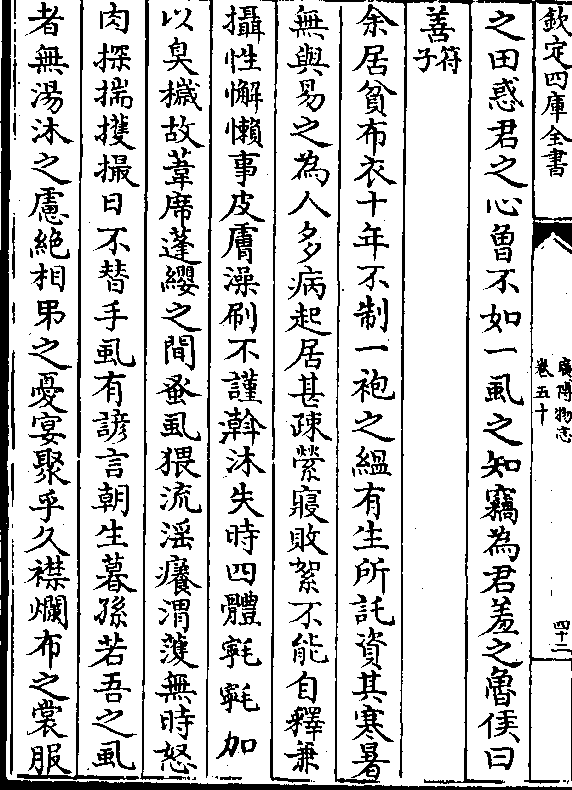 欽定四庫全書
廣博物志
卷五十
四十二
之田惑君之心曾不如一虱之知竊為君羞之魯侯曰
善符子
余居貧布衣十年不制一袍之緼有生所託資其寒暑
無與易之為人多病起居甚疎縈寢敗絮不能自釋兼
攝性懈懶事皮膚澡刷不謹澣沐失時四體㲰㲰加
以臭穢故葦席蓬纓之間蚤虱猥流淫癢渭濩無時恕
肉探揣擭撮日不替手虱有諺言朝生暮孫若吾之虱
者無湯沐之慮絶相弔之憂宴聚乎久襟爛布之裳服